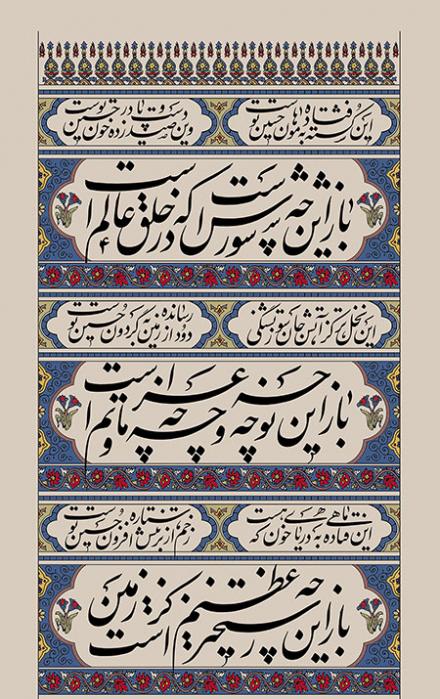 این کشته فتاده به هامون حسین توست وین صید دست و پا زده در خون حسین توست
باز این چه شورش است که در خلق عالم است
این نخل تر کز آتش جان سوز تشنگی دود از زمین رسانده به گردون حسین توست
باز این چه نوحه و چه عزا و چه ماتم است
این ماهی فتاده به دریای خون که هست زخم از ستاره بر تنش افزون حسین توست
باز این چه رستخیز عظیم است کز زمین